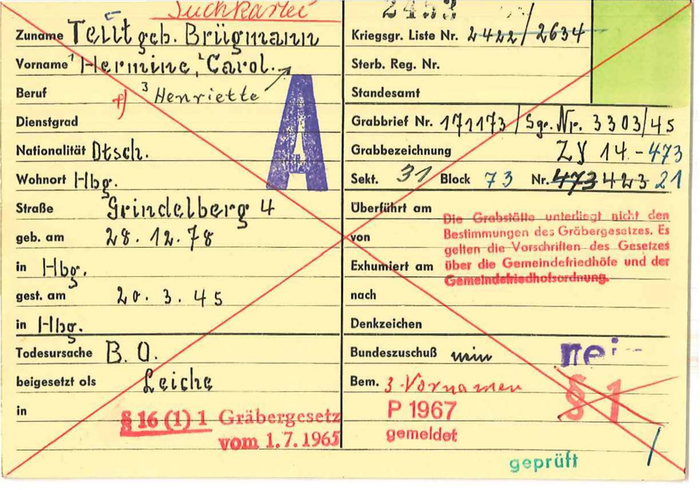 Suchkartei
Zuname Telit geb. Brügmann
Vorname ¹Hermine, ²Carol.
Beruf ³Henriette
Dienstgrad
Nationalität Dtsch.
Wohnort Hbg.
Straße Grindelberg 4
geb. am 28.12.78
in Hbg.
gest. am 20.3.45
in Hbg.
Todesursache B. O.
beigesetzt als Leiche
in
§ 16 (1) 1 Gräbergesetz
vom 1.7.1965
A
Kriegsgr. Liste Nr. 2422/2634
Sterb. Reg. Nr.
Standesamt
Grabbrief Nr. 171173/Sgr. Nr. 3303/45
Grabbezeichnung ZY 14-473
Sekt. 31 Block 73 Nr. 473 423 21
Überführt am
von
Exhumiert am
nach
Die Grabstätte unterliegt nicht den
Bestimmungen des Gräbergesetzes. Es
gelten die Vorschriften des Gesetzes
über die Gemeindefriedhöfe und der
Gemeindefriedhofsordnung.
Denkzeichen
Bundeszuschuß nein
Bem. 3 Vornamen
P 1967
gemeldet
§ 1
geprüft